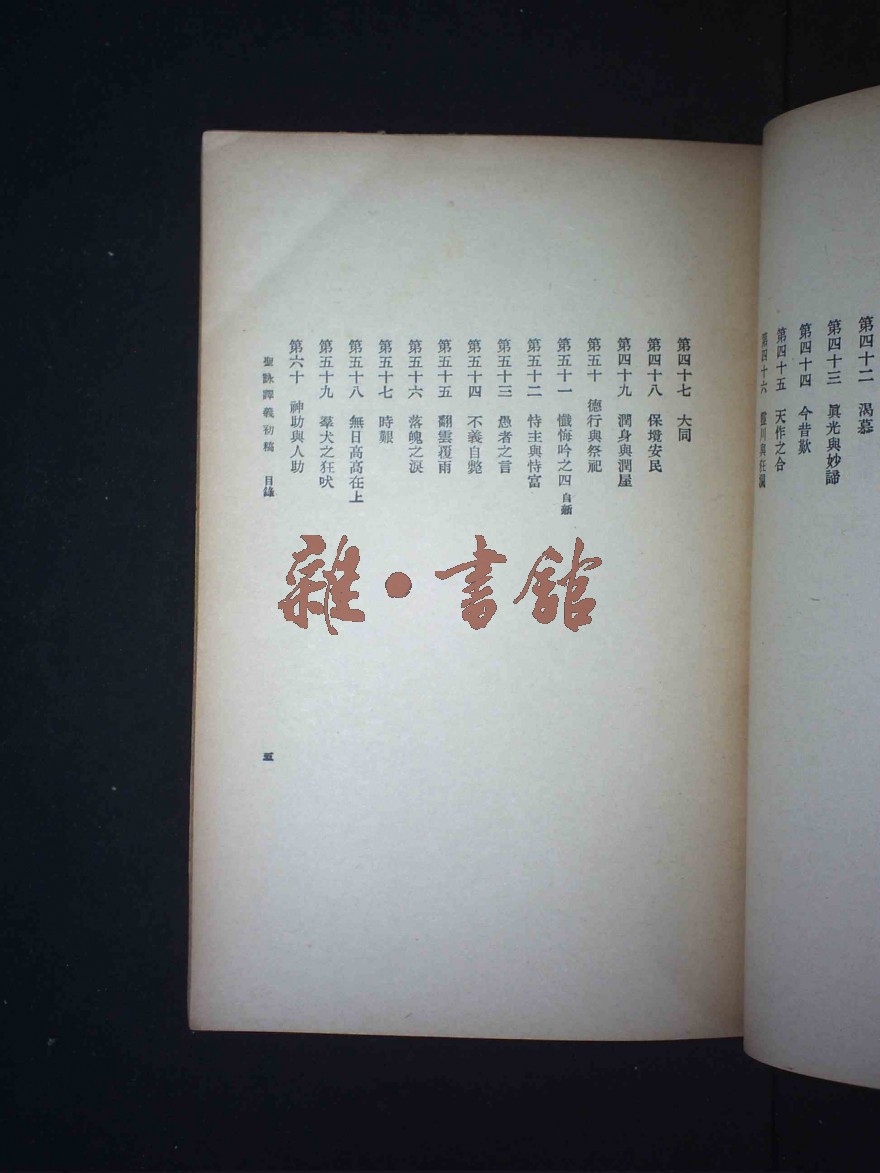 第四十二　渴慕
第四十三　眞光與妙諦
第四十四　今昔歎
第四十五　天作之合
第四十六　靈川與狂瀾
第四十七　大同
第四十八　保墰安民
第四十九　潤身與潤屋
第五十　德行與祭祀
第五十一　懺悔吟之四　自新
第五十二　恃主與恃富
第五十三　愚者之言
第五十四　不義自斃
第五十五　翻雲覆雨
第五十六　落魄之淚
第五十七　時艱
第五十八　無日高高在上
第五十九　羣犬之狂吠
第六十　神助與人助
聖詠譯義初稿　目錄
五
雜·書館